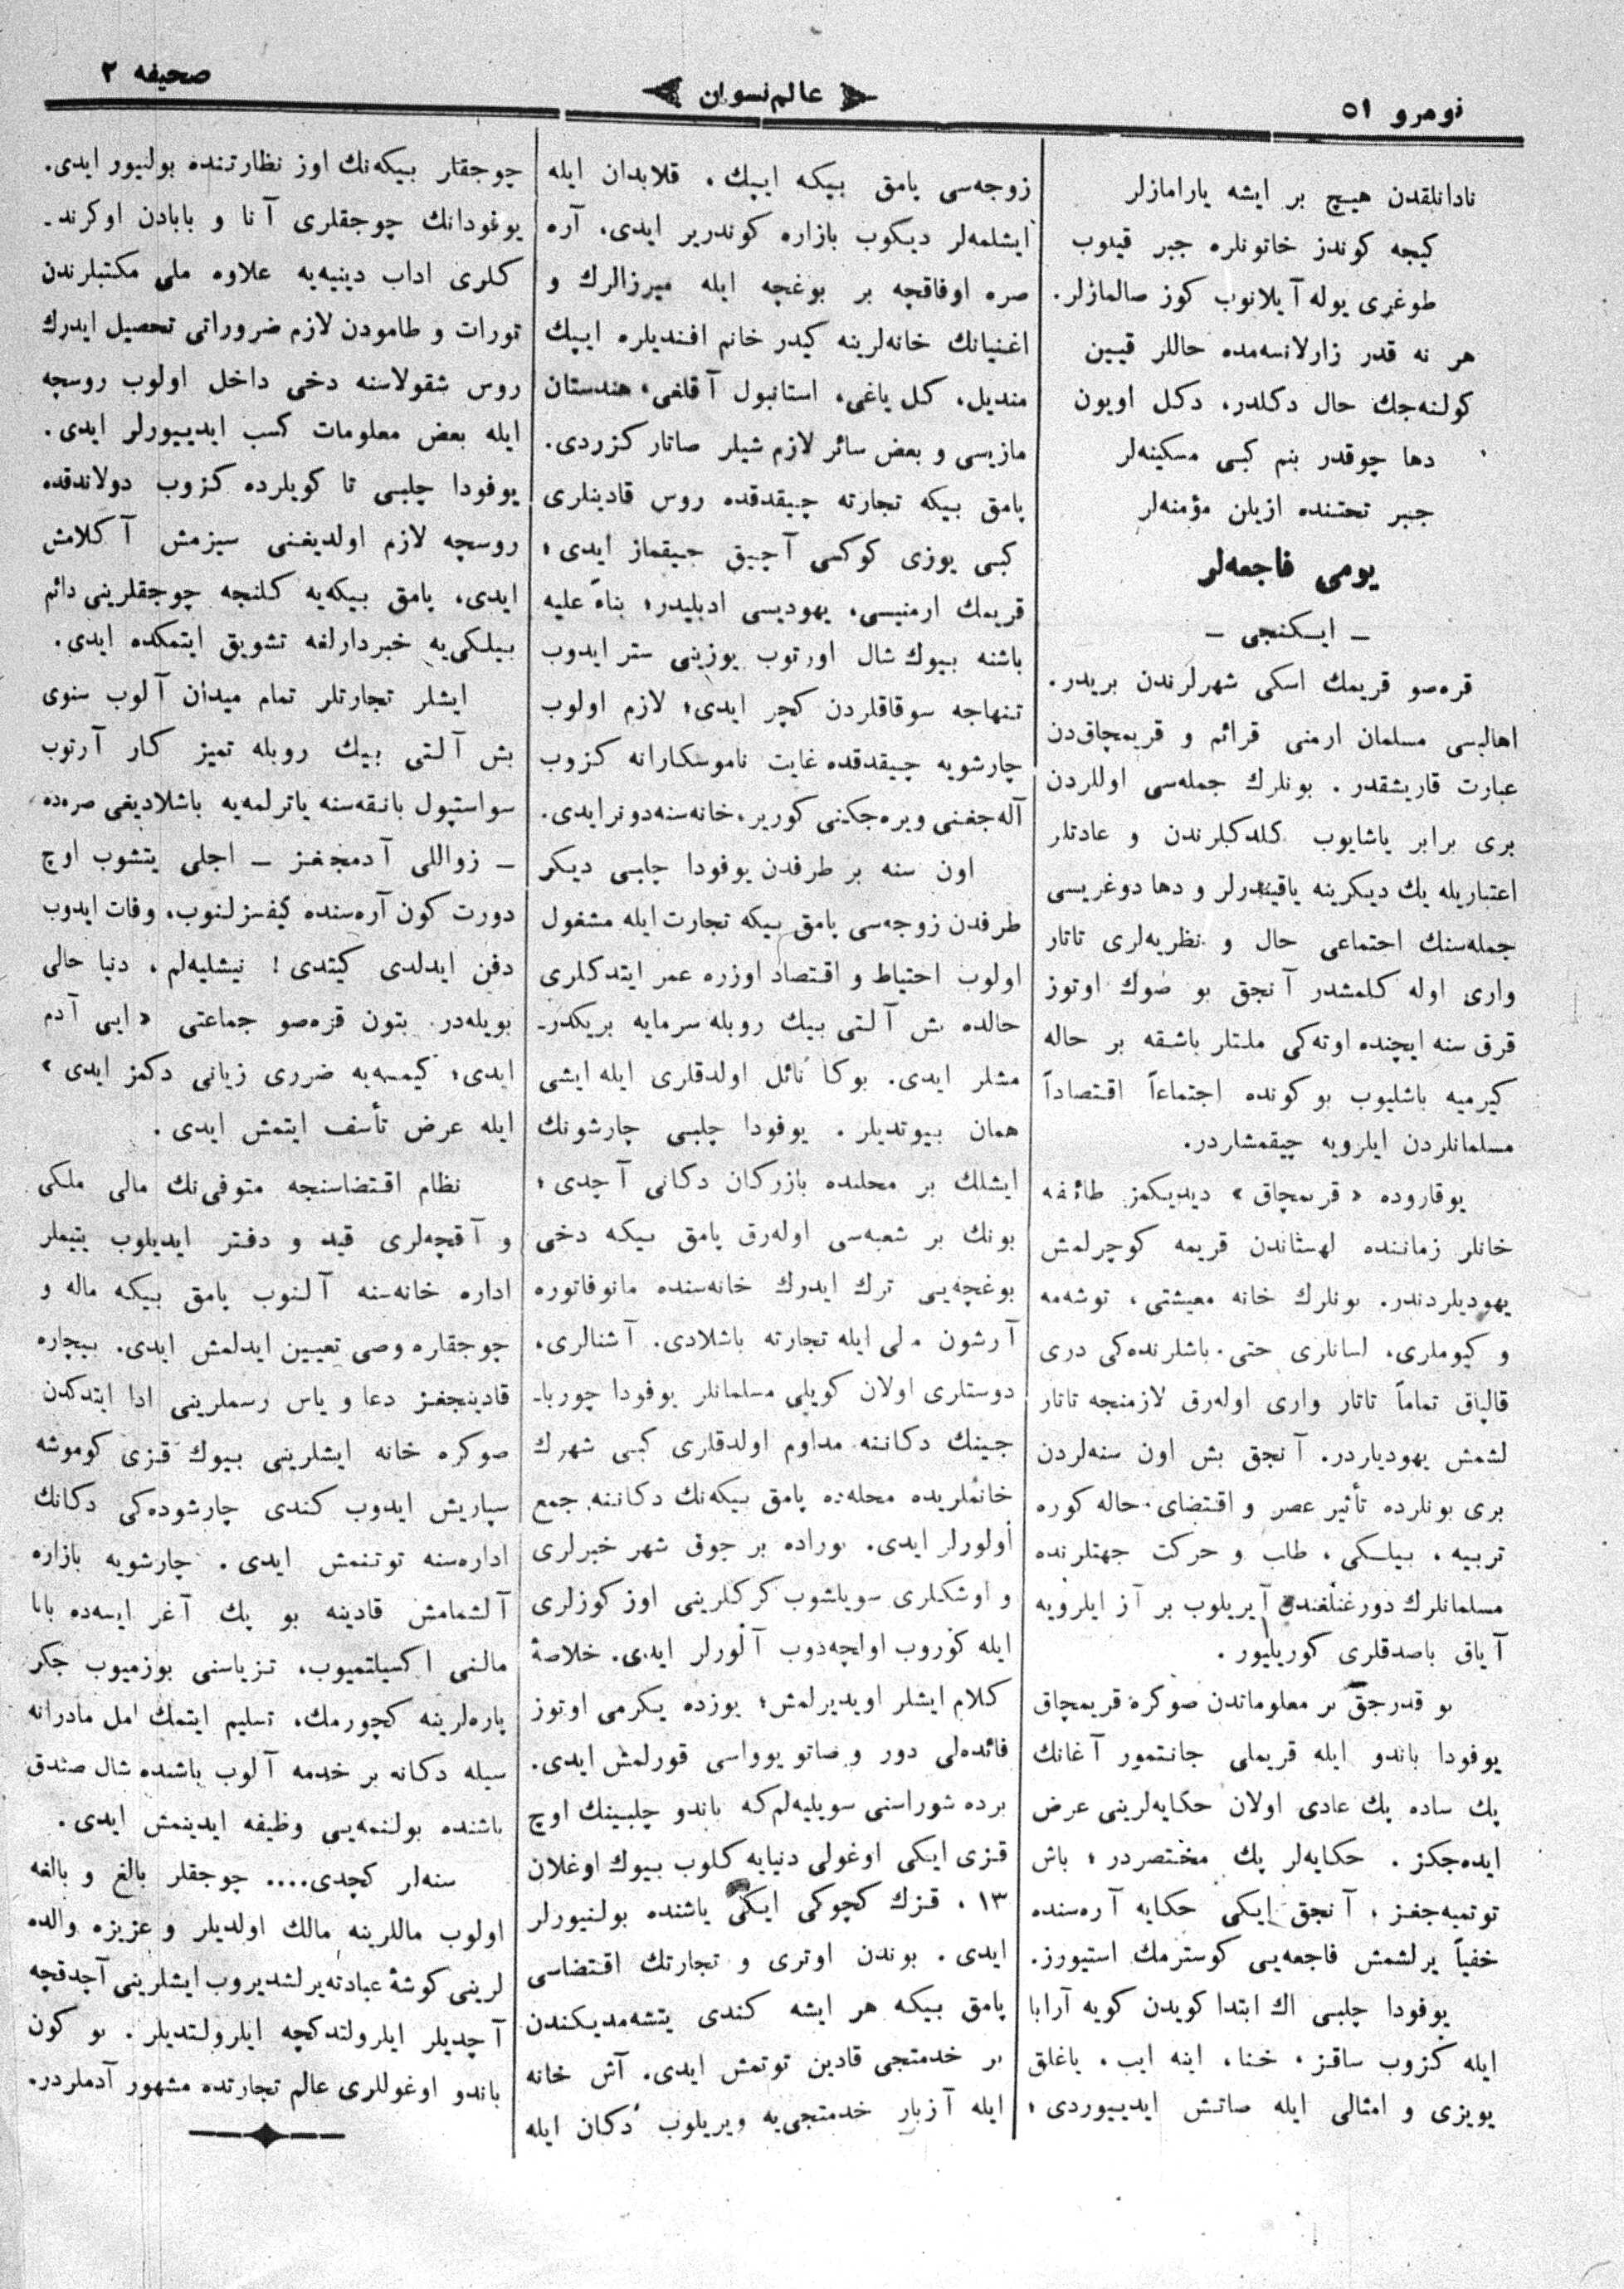 نومرو ٥١
عالم نسوان
صحیفه ٢
نادانلقدن هیچ بر ایشه یارامازلر
کیجه کوندز خاتونلره جبر قیدوب
طوغری یوله آیلانوب کوز صالمازلر.
هر نه قدر زارلانسه‌مده حاللر قیین
کولنه‌جك حال دکلدر، دکل اویون
دها چوقدر بنم کبی مسکینه‌لر
جبر تحتنده ازیلن مؤمنه‌لر
یومی فاجعه‌لر
ـ ایکنجی ـ
قره‌صو قریمك اسکی شهرلرندن بریدر.
اهالیسی مسلمان ارمنی قرائم و قریمچاق‌دن
عبارت قاریشقدر . بونلرك جمله‌سی اوللردن
بری برابر یاشایوب کلدکلرندن و عادتلر
اعتباریله یك دیکرینه یاقیندرلر و دها دوغریسی
جمله‌سنك احتماعی حال و نظریه‌لری تاتار
واری اوله کلمشدر آنجق بو صوك اوتوز
قرق سنه ایچنده اوته‌کی ملتلر باشقه بر حاله
کیرمیه باشلیوب بو کونده اجتماعاً اقتصاداً
مسلمانلردن ایلرویه چیقمشلردر.
یوقاروده «قریمچاق» دیدیکمز طائفه
خانلر زماننده لهستاندن قریمه کوچرلمش
یهودیلردندر. بونلرك خانه معیشتی، توشه‌مه
و کیوملری، لسانلری حتی باشلرنده‌کی دری
قالپاق تماماً تاتار واری اوله‌رق لازمنجه تاتار
لشمش یهودیلردر. آنجق بش اون سنه‌لردن
بری بونلرده تأثیر عصر و اقتضای حاله کوره
تربیه ، بیلکی ، طلب و حرکت جهتلرنده
مسلمانلرك دورغنلغندن آیریلوب بر آز ایلرویه
آیاق باصدقلری کوریلیور .
بو قدرجق بر معلوماتدن صوکره قریمچاق
یوفودا باندو ایله قریملی جانتمور آغانك
پك ساده پك عادی اولان حکایه‌لرینی عرض
ایده‌جکز . حکایه‌لر پك مختصردر ؛ باش
توتمیه‌جغز ؛ آنجق ایکی حکایه آره‌سنده
خفیاً یرلشمش فاجعه‌یی کوسترمك استیورز.
یوفودا چلبی اك ابتدا کویدن کویه آرابا
ایله کزوب ساقز ، خنا، اینه ایب ، یاغلق
یویزی و امثالی ایله صاتش ایدییوردی ؛
زوجه‌سی یامق بیکه ایپك ، قلابدان ایله
ایشلمه‌لر دیکوب بازاره کوندریر ایدی، آره
صره اوفاقچه بر بوغچه ایله میرزالرك و
اغنیانك خانه‌لرینه کیدر خانم افندیلره ایپك
مندیل، کل یاغی، استانبول آقلغی، هندستان
مازیسی و بعض سائر لازم شیلر صاتار کزردی.
یامق بیکه تجارته چیقدقده روس قادینلری
کبی یوزی کوکسی آچیق چیقماز ایدی ؛
قریمك ارمنیسی، یهودیسی ادبلیدر؛ بناءً علیه
باشنه بیوك شال اورتوب یوزینی ستر ایدوب
تنهاجه سوقاقلردن کچر ایدی؛ لازم اولوب
چارشویه چیقدقده غایت ناموسکارانه کزوب
آله‌جغنی ویره‌جکنی کوریر، خانه‌سنه دونر ایدی.
اون سنه بر طرفدن یوفودا چلبی دیکر
طرفدن زوجه‌سی یامق بیکه تجارت ایله مشغول
اولوب احتیاط و اقتصاد اوزره عمر ایتدکلری
حالده بش آلتی بیك روبله سرمایه بریکدر-
مشلر ایدی. بوکا نائل اولدقلری ایله ایشی
همان بیوتدیلر . یوفودا چلبی چارشونك
ایشلك بر محلنده بازرکان دکانی آچدی ؛
بونك بر شعبه‌سی اوله‌رق یامق بیکه دخی
بوغچه‌یی ترك ایدرك خانه‌سنده مانوفاتوره
آرشون ملی ایله تجارته باشلادی. آشنالری،
دوستلری اولان کویلی مسلمانلر یوفودا چوربا-
جینك دکاننه مداوم اولدقلری کبی شهرك
خانملریده محله‌ده یامق بیکه‌نك دکاننه جمع
اولورلر ایدی. بوراده بر چوق شهر خبرلری
و اوشکلری سویلشوب کرکلرینی اوز کوزلری
ایله کوروب اولچه‌دوب آلورلر ایدی. خلاصهٔ
کلام ایشلر اویدیرلمش ؛ یوزده یکرمی اوتوز
فائده‌لی دور و صاتو یوواسی قورلمش ایدی.
برده شوراسنی سویلیه‌لم که باندو چلبینك اوچ
قزی ایکی اوغولی دنیایه کلوب بیوك اوغلان
١٣ ، قزك کچوکی ایکی یاشنده بولنیورلر
ایدی . بوندن اوتری و تجارتك اقتضاسی
یامق بیکه هر ایشه کندی یتشه‌مدیکندن
بر خدمتجی قادین توتمش ایدی. آش خانه
ایله آزبار خدمتجی‌یه ویریلوب دکان ایله
چوجقلر بیکه‌نك اوز نظارتنده بولنیور ایدی.
یوفودانك چوجقلری آنا و بابادن اوکرند-
کلری اداب دینیه‌یه علاوه ملی مکتبلرندن
تورات و طامودن لازم ضروراتی تحصیل ایدرك
روس شقولاسنه دخی داخل اولوب روسچه
ایله بعض معلومات کسب ایدییورلر ایدی.
یوفودا چلبی تا کویلرده کزوب دولاندقده
روسچه لازم اولدیغنی سیزمش آکلامش
ایدی، یامق بیکه‌یه کلنجه چوجقلرینی دائم
بیلکی‌یه خبردارلغه تشویق ایتمکده ایدی.
ایشلر تجارتلر تمام میدان آلوب سنوی
بش آلتی بیك روبله تمیز کار آرتوب
سواستپول بانقه‌سنه یاترلمه‌یه باشلادیغی صره‌ده
ـ زواللی آدمجغز ـ اجلی یتشوب اوچ
دورت کون آره‌سنده کیفسزلنوب، وفات ایدوب
دفن ایدلدی کیتدی! نیشلیه‌لم ، دنیا حالی
بویله‌در. بتون قره‌صو جماعتی «ایی آدم
ایدی؛ کیمسه‌یه ضرری زیانی دکمز ایدی»
ایله عرض تأسف ایتمش ایدی .
نظام اقتضاسنجه متوفی‌نك مالی ملکی
و آقچه‌لری قید و دفتر ایدیلوب یتیملر
اداره خانه‌سنه آلنوب یامق بیکه ماله و
چوجقلره وصی تعیین ایدلمش ایدی. بیچاره
قادینجغز دعا و یاس رسملرینی ادا ایتدکدن
صوکره خانه ایشلرینی بیوك قزی کوموشه
سپاریش ایدوب کندی چارشوده‌کی دکانك
اداره‌سنه توتنمش ایدی . چارشویه بازاره
آلشمامش قادینه بو پك آغر ایسه‌ده بابا
مالنی اکسیلتمیوب، تزیاسنی بوزمیوب جکر
پاره‌لرینه کچورمك، تسلیم ایتمك امل مادرانه
سیله دکانه بر خدمه آلوب باشنده شال صندق
باشنده بولنمه‌یی وظیفه ایدینمش ایدی.
سنه‌لر کچدی.... چوجقلر بالغ و بالغه
اولوب ماللرینه مالك اولدیلر و عزیزه والده
لرینی کوشهٔ عبادته یرلشدیروب ایشلرینی آچدقچه
آچدیلر ایلرولتدکچه ایلرولتدیلر . بو کون
باندو اوغوللری عالم تجارتده مشهور آدملردر.